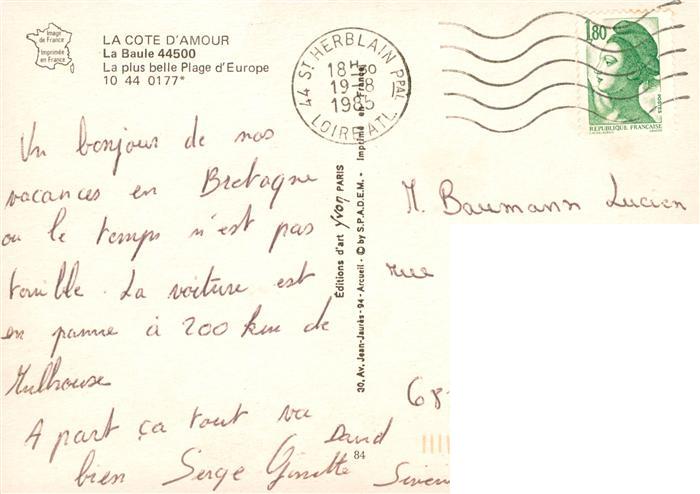 Image
de France
Imprimée
en France
LA COTE D'AMOUR
La Baule 44500
La plus belle Plage d'Europe
10 44 0177*
44 ST HERBLAIN PPAL
18H30
19-8
1985
LOIRE ATL.
1,80
POSTES
REPUBLIQUE FRANÇAISE
Un bonjour de nos
vacances en Bretagne
ou le temps n'est pas
terrible. La voiture est
en panne à 200 km de
Mulhouse
A part ça tout va
bien Serge Ginette David
Editions d'art Yvon PARIS
30, Av. Jean-Jaurès - 94 - Arcueil - © by S.P.A.D.E.M. - Imprimé en France
M. Baumann Lucien
rue
68
84